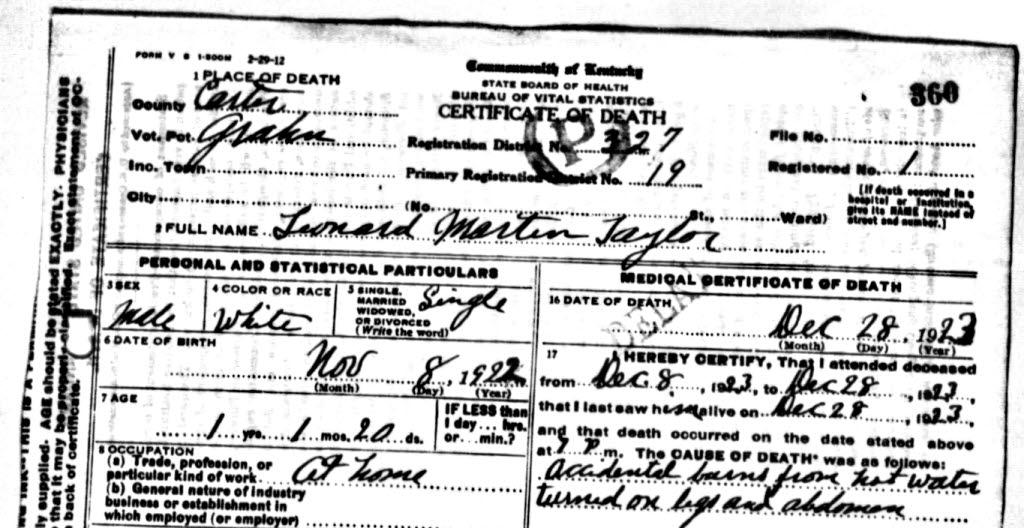 FORM V S 1-500M 2-29-12
Commonwealth of Kentucky
STATE BOARD OF HEALTH
BUREAU OF VITAL STATISTICS
CERTIFICATE OF DEATH
360
1 PLACE OF DEATH
County Carter
Vot. Pct. Grahn
Inc. Town
City
Registration District No. 327
Primary Registration District No. 19
File No.
Registered No. 1
(No. St., Ward)
[If death occurred in a
hospital or institution,
give its NAME instead of
street and number.]
2 FULL NAME Leonard Martin Taylor
PERSONAL AND STATISTICAL PARTICULARS
3 SEX
Male
4 COLOR OR RACE
White
5 SINGLE,
MARRIED
WIDOWED,
OR DIVORCED
(Write the word)
Single
6 DATE OF BIRTH
Nov 8, 1922
(Month) (Day) (Year)
7 AGE
1 yrs. 1 mos. 20 ds.
IF LESS than
1 day... hrs.
or... min.?
8 OCCUPATION
(a) Trade, profession, or
particular kind of work At home
(b) General nature of industry
business or establishment in
which employed (or employer)
MEDICAL CERTIFICATE OF DEATH
DELAYED
16 DATE OF DEATH
Dec 28, 1923
(Month) (Day) (Year)
17 I HEREBY CERTIFY, That I attended deceased
from Dec 8, 1923, to Dec 28, 1923,
that I last saw him alive on Dec 28, 1923,
and that death occurred on the date stated above
at 7 P. m. The CAUSE OF DEATH* was as follows:
Accidental burns from hot water
turned on legs and abdomen
AGE should be stated EXACTLY. PHYSICIANS
that it may be properly classified. Exact statement of OC-
back of certificate.